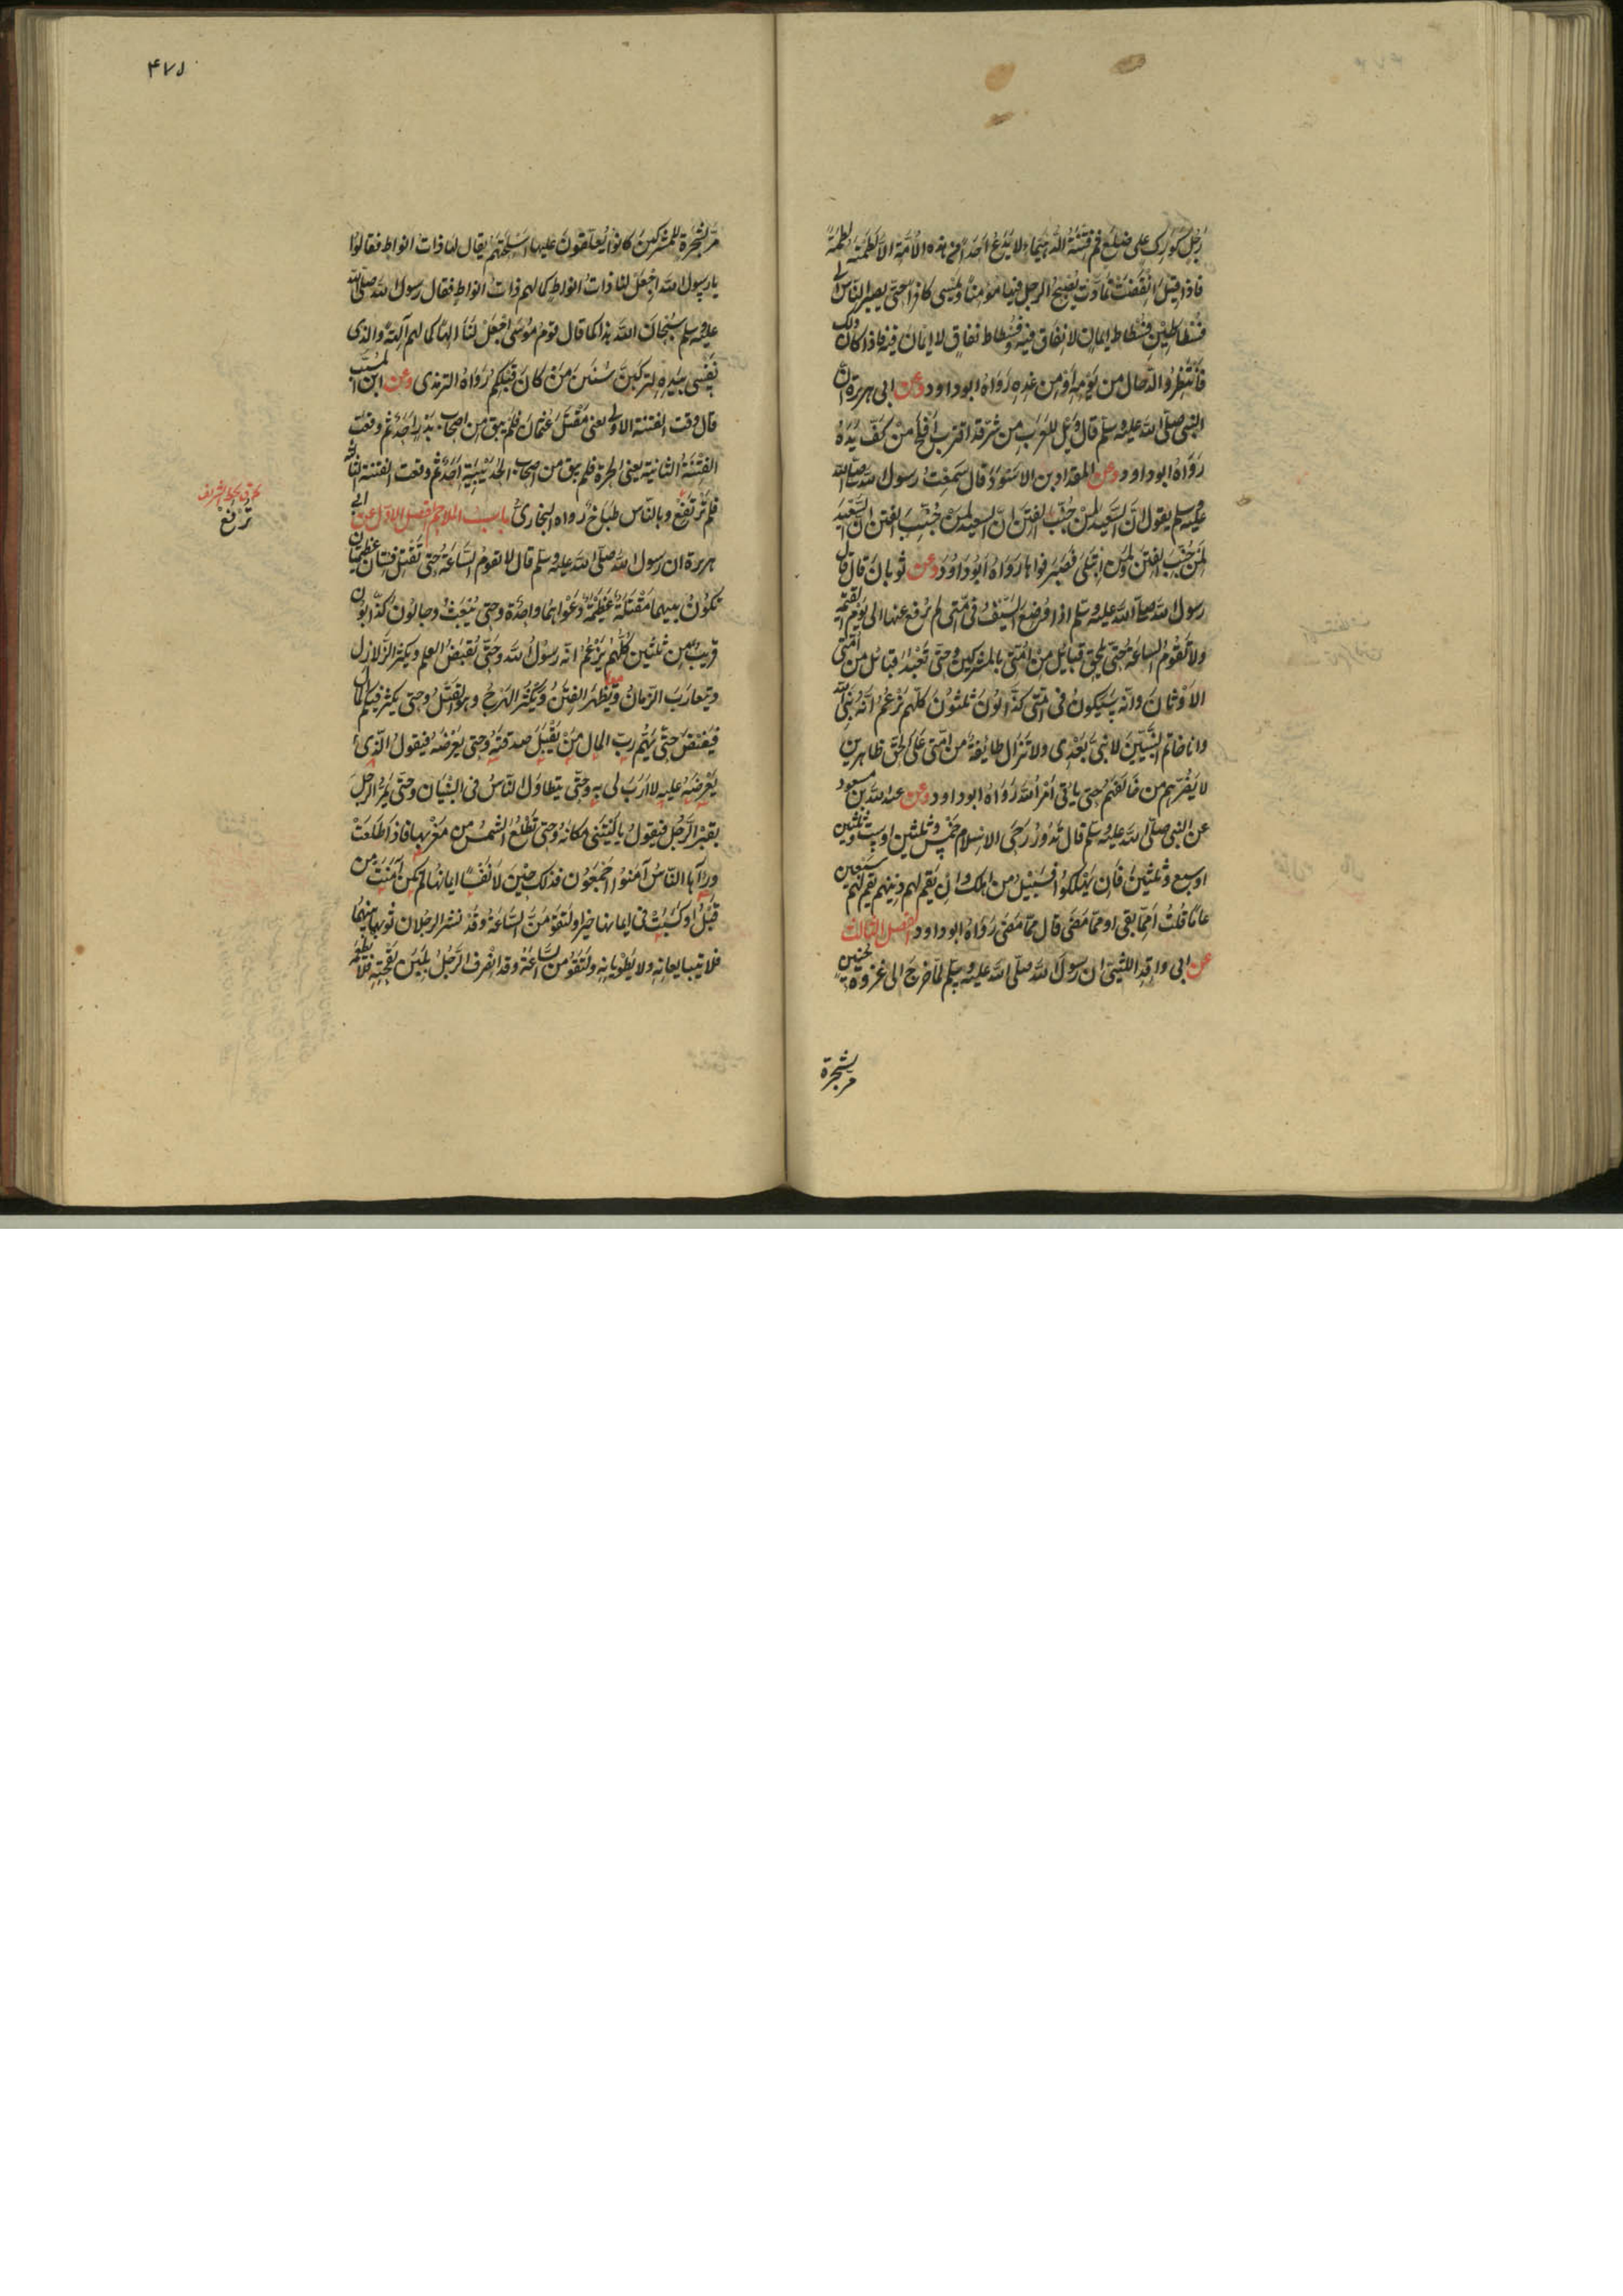 رَجُلٍ كَوَرِكٍ على ضِلَعٍ ثم فِتْنَةُ الدُّهَيْمَاءِ لا يَدَعُ اَحَدًا من هذه الاُمَّةِ الاَّ لَطَمَتْهُ لَطْمَةً
فاذا قِيلَ انْقَضَتْ تَمَادَّتْ يُصْبِحُ الرجلُ فيها مُؤمِنًا ويُمسِى كافرًا حتّى يصيرَ الناسُ الى
فُسْطَاطَيْنِ فُسْطاطِ ايمانٍ لا نِفَاقَ فيه وفُسْطاط نفاقٍ لا ايمَانَ فيه فاذا كان ذلك
فَانْتَظِرُوا الدّجّال من يَوْمِه اَوْ من غَدِهِ رَوَاهُ ابو داود وعن ابى هريرة ان
النبى صلّى الله عليه وسلّم قال وَيْلٌ لِلعَرَبِ مِن شرٍّ قَد اقتربَ اَفْلَحَ مَنْ كَفَّ يَدَهُ
رَوَاهُ ابو داود وعن المقداد بن الاَسْوَدِ قال سَمِعْتُ رسول الله صلى الله
عليه وسلم يقول انّ السَّعِيدَ لَمَنْ جُنِّبَ الفِتَنَ انّ السعيد لَمَنْ جُنِّبَ الفتن ان السَّعِيدَ
لَمَنْ جُنِّبَ الفتنَ ولَمَنِ ابْتُلِىَ فَصَبَرَ فواهًا رَوَاهُ اَبُو دَاوُدَ وعن ثوبانَ قال قال
رسول الله صلّى الله عليه وسلّم اذا وُضِعَ السَّيْفُ فى امّتى لم يُرفع عنها الى يَوْمِ القيمة
ولا تَقُومُ السّاعَةُ حتى تلحق قبائِلُ مِنْ اُمَّتى بالمشركين وحتى تَعْبُدَ قبائل من اُمّتى
الاَوْثانَ وانّه سَيَكُونُ فى امّتى كذّابُونَ ثلثُونَ كلّهم يَزْعُمُ انّه نَبِىُّ الله
وانا خاتَمُ النَّبِيّينَ لا نبىَّ بَعْدِى ولا تزال طائِفَةٌ من اُمّتى عَلَى الحَقِّ ظاهِرين
لا يَضُرُّهم من خَالَفَهُمْ حتى ياتى اَمْرُ الله رَوَاهُ ابو داود وعن عبد الله بن مسعود
عن النبى صلّى الله عليه وسلّم قال تَدُورُ رَحَى الاسلام لخمْسٍ وثلثين او سِتٍّ وثلثين
او سبع وثلثين فَاِن يَهْلِكُوا فَسَبِيلُ من هلك وان يَقُمْ لهم دِينُهم يَقُمْ لَهُمْ سبعين
عامًا قُلتُ اَمِمّا بَقِىَ او ممّا مَضَى قال ممّا مَضَى رَوَاهُ ابو داود الفصل الثالث
عن ابى واقدٍ الليثى ان رسول الله صلّى الله عليه وسلّم لمّا خرج الى غزوة حُنين
مرّ بشجرة
۴۷۵
مرّ بشجرة للمشركينَ كانوا يُعَلِّقُونَ عليها اَسْلِحَتَهُمْ يقال لها ذاتُ انواط فقالوا
يا رسول الله اجْعَلْ لنا ذاتَ انواط كما لهم ذاتُ انواطٍ فقال رسول الله صلى الله
عليه وسلم سُبْحَانَ الله هذا كما قال قومُ مُوسَى اجْعَلْ لَنَا الهًا كما لهم آلِهَةٌ والذى
نَفْسِى بيَدِهِ لتركَبُنَّ سُنَنَ مَنْ كانَ قَبْلكُمْ رَوَاهُ الترمذى وعن ابن المُسَيَّب
قال وقعت الفتنة الاولى يعنى مَقْتَلَ عُثمانَ فلم يبق من اصحاب بَدْرٍ اَحَدٌ ثم وقعت
الفِتْنَةُ الثانية يعنى الحَرّةَ فلم يبق من اصحاب الحُدَيْبِيَةِ اَحَدٌ ثم وقعت الفتنة الثالثة
فلم ترتفع وبالناس طَبَاخٌ رواه البخارىُّ باب الملاحم الفصل الاول عن ابى
هريرة ان رسول الله صلّى الله عليه وسلّم قال لا تقومُ السَّاعَةُ حتى تَقْتَتِلَ فِئتان عظيمتان
تَكونُ بينهما مَقْتَلَةٌ عَظِيمَةٌ دَعْوَاهُما واحِدَةٌ وحتى يُبْعَثَ دجّالون كذّابون
قريبٌ مِن ثلثين كُلُّهُم يَزْعُمُ انّه رسُول الله وحَتّى يُقْبَضَ العلم ويكثر الزلازل
ويتقارَبَ الزّمانُ ويَظْهَرَ الفِتَنُ ويَكْثُرَ الهَرْجُ وهو القَتْلُ وحتى يكثر فيكم المال
فَيَفِيضَ حتّى يُهِمَّ رَبَّ المال مَنْ يَقْبَلُ صدقتَهُ وحتى يَعْرِضَهُ فيقولُ الّذِى
يَعْرِضُهُ عليه لا اَرَبَ لى به وحتّى يتطاوَلَ النّاسُ فى البُنْيَان وحتّى يَمُرَّ الرجلُ
بقبرِ الرَّجُلِ فيقولُ يا لَيْتَنِى مَكَانَهُ وحتى تَطْلُعَ الشَّمْسُ من مَغْرِبها فاذا طَلَعَتْ
ورَآها النّاسُ آمَنُوا اَجْمَعُونَ فذلك حينَ لا يَنْفَعُ نَفْسًا ايمانُها لم تكن آمَنَتْ مِن
قَبْلُ او كَسَبَتْ فى ايمانِها خيرًا ولَتَقُومَنَّ السَّاعَةُ وقَدْ نَشَرَ الرجُلان ثوبهما بينهما
فلا يَتَبايَعانِهِ ولا يَطْوِيانِهِ ولَتَقُومَنَّ السَّاعَةُ وقد انْصَرَفَ الرَّجُلُ بِلَبَنِ لِقْحَتِهِ فلا يطعمه
ترتفع